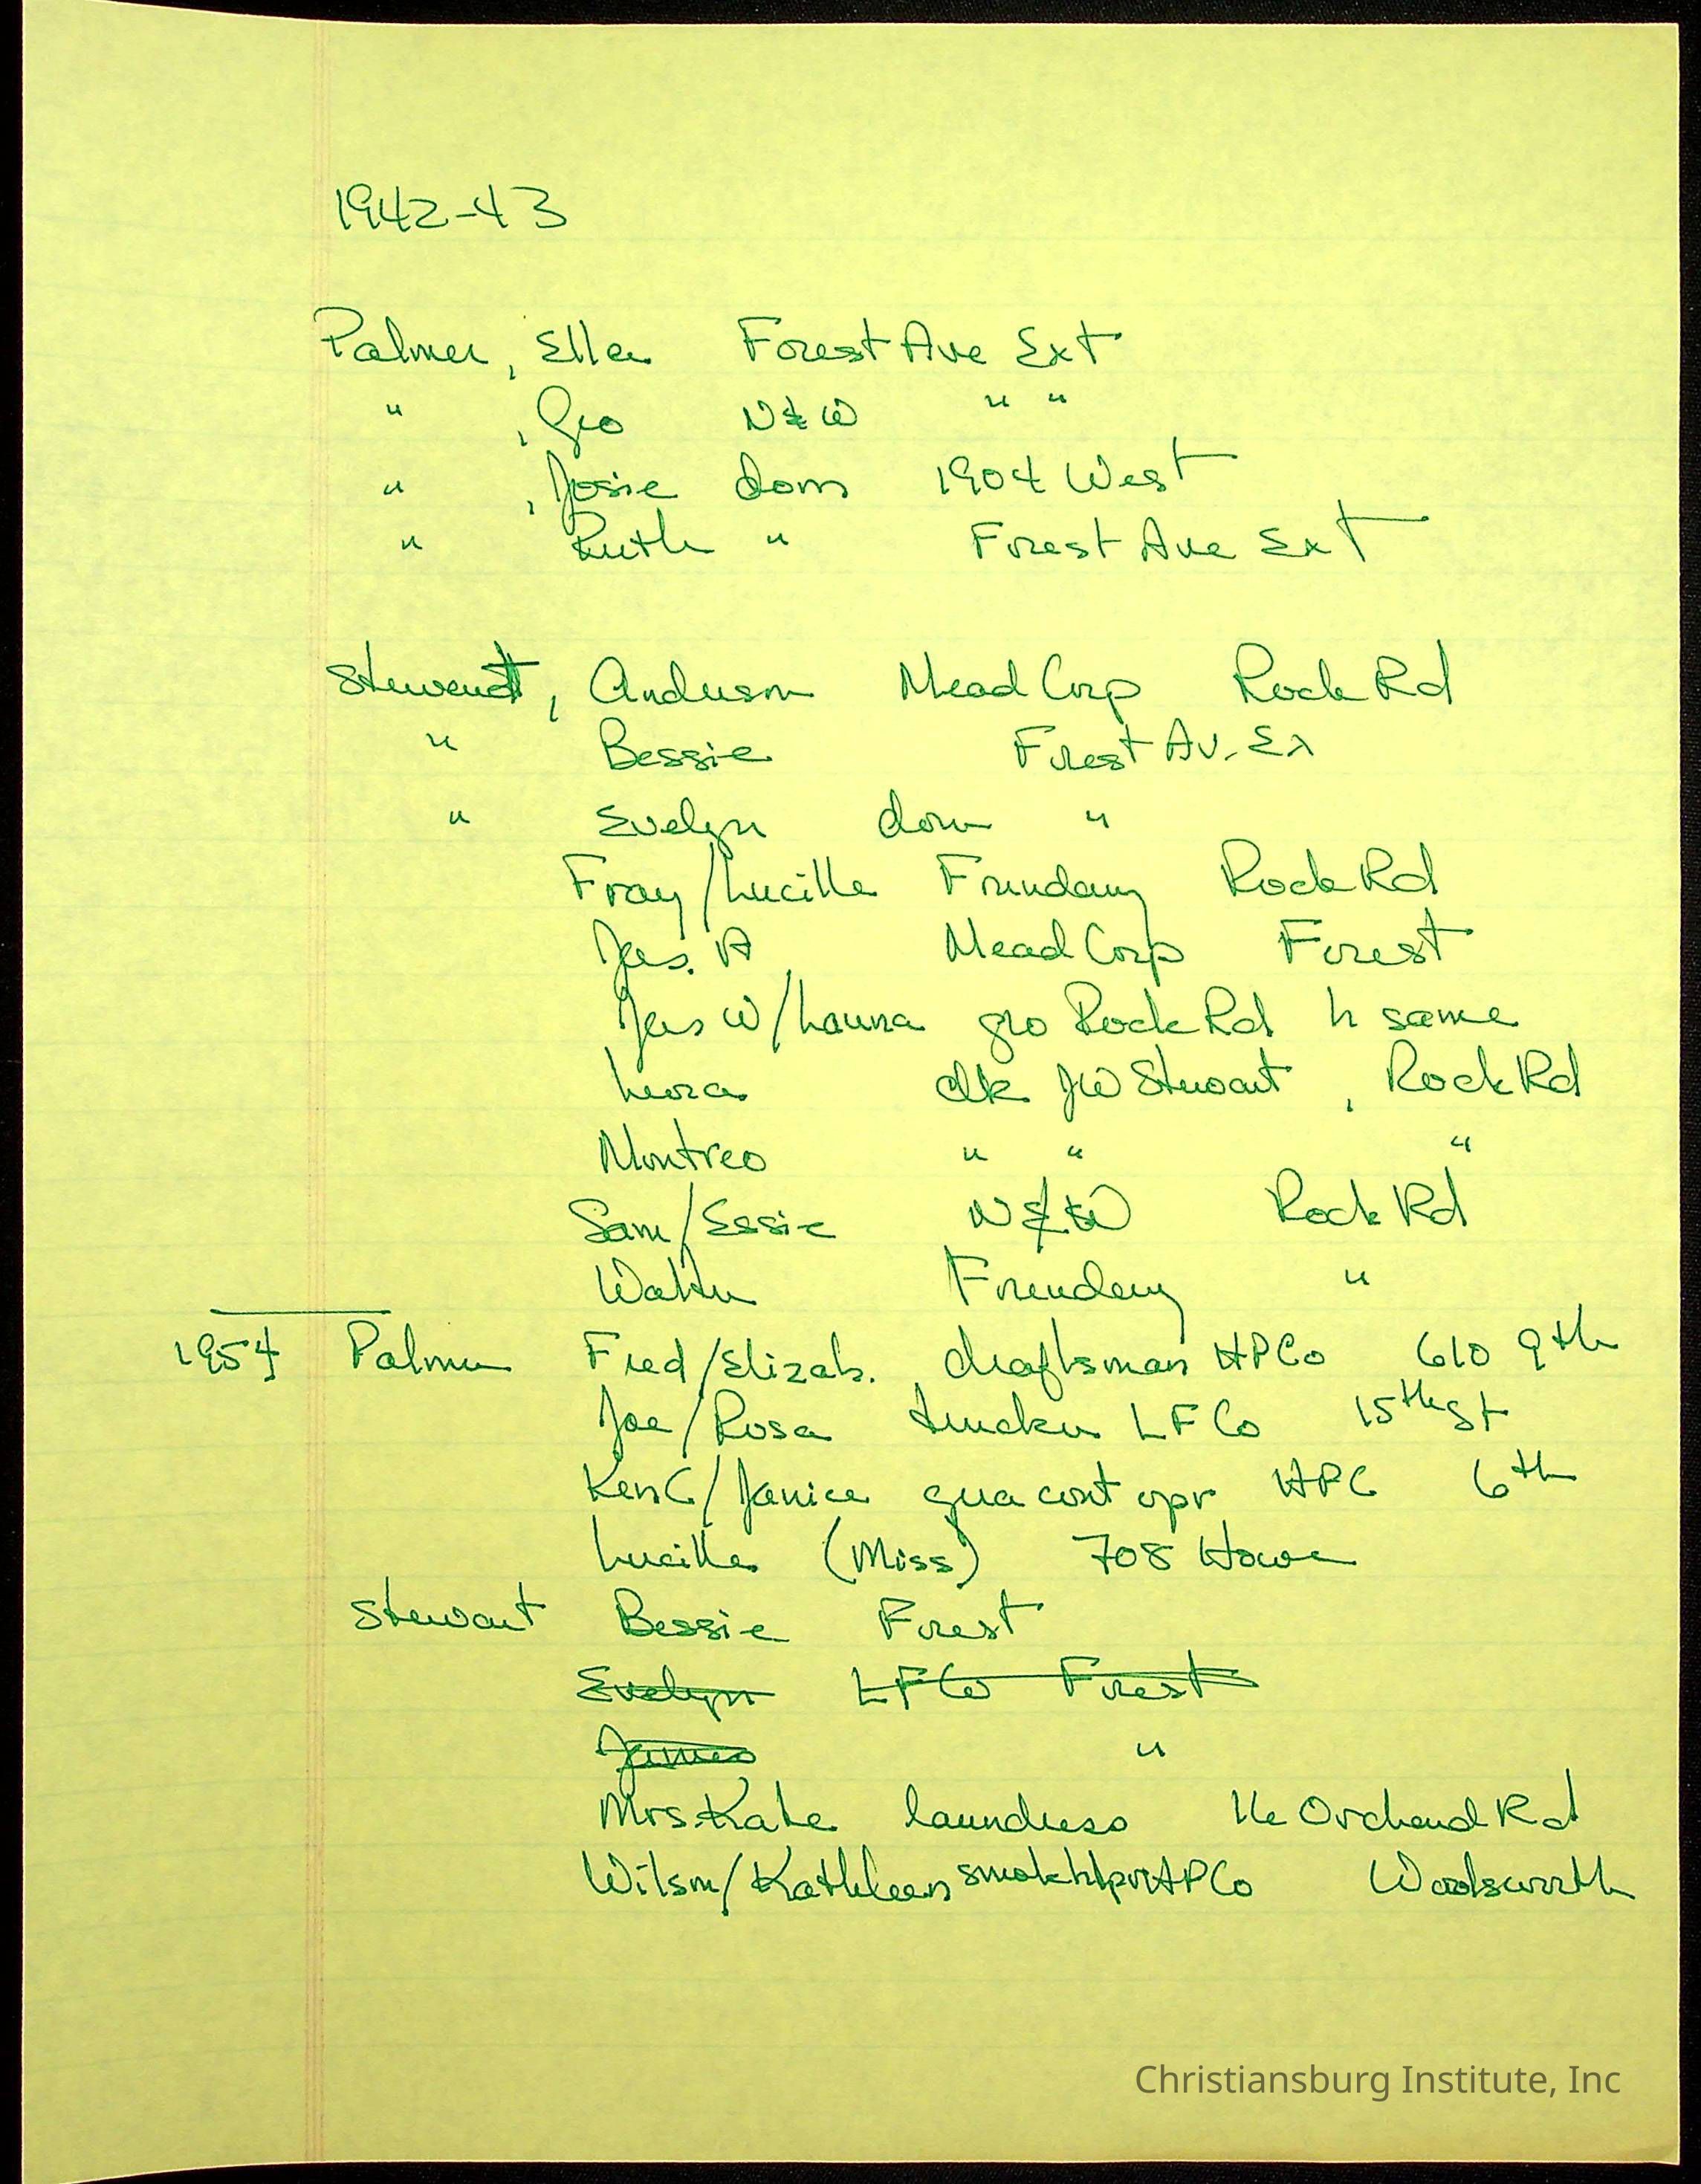 1942-43
Palmer, Ella Forest Ave Ext
" , Geo N&W " "
" , Josie dom 1904 West
" Ruth " Forest Ave Ext
Stewart, Anderson Mead Corp Rock Rd
" Bessie Forest Av. Ex
" Evelyn dom "
Fray/Lucille Foundry Rock Rd
Jas. A Mead Corp Forest
Jas W/Laura gro Rock Rd h same
Leora clk JW Stewart, Rock Rd
Montreo " " "
Sam/Essie N&W Rock Rd
Walter Foundry "
1954 Palmer Fred/Elizab. draftsman HPCo 610 9th
Joe/Rosa trucker LF Co 15th St
Ken C/Janice cont opr HPC 6th
Lucille (Miss) 708 Howe
Stewart Bessie Forest
Evelyn LFCo Forest
James "
Mrs. Kate laundress Orchard Rd
Wilson/Kathleen smokhlpr HPCo Wadsworth
Christiansburg Institute, Inc